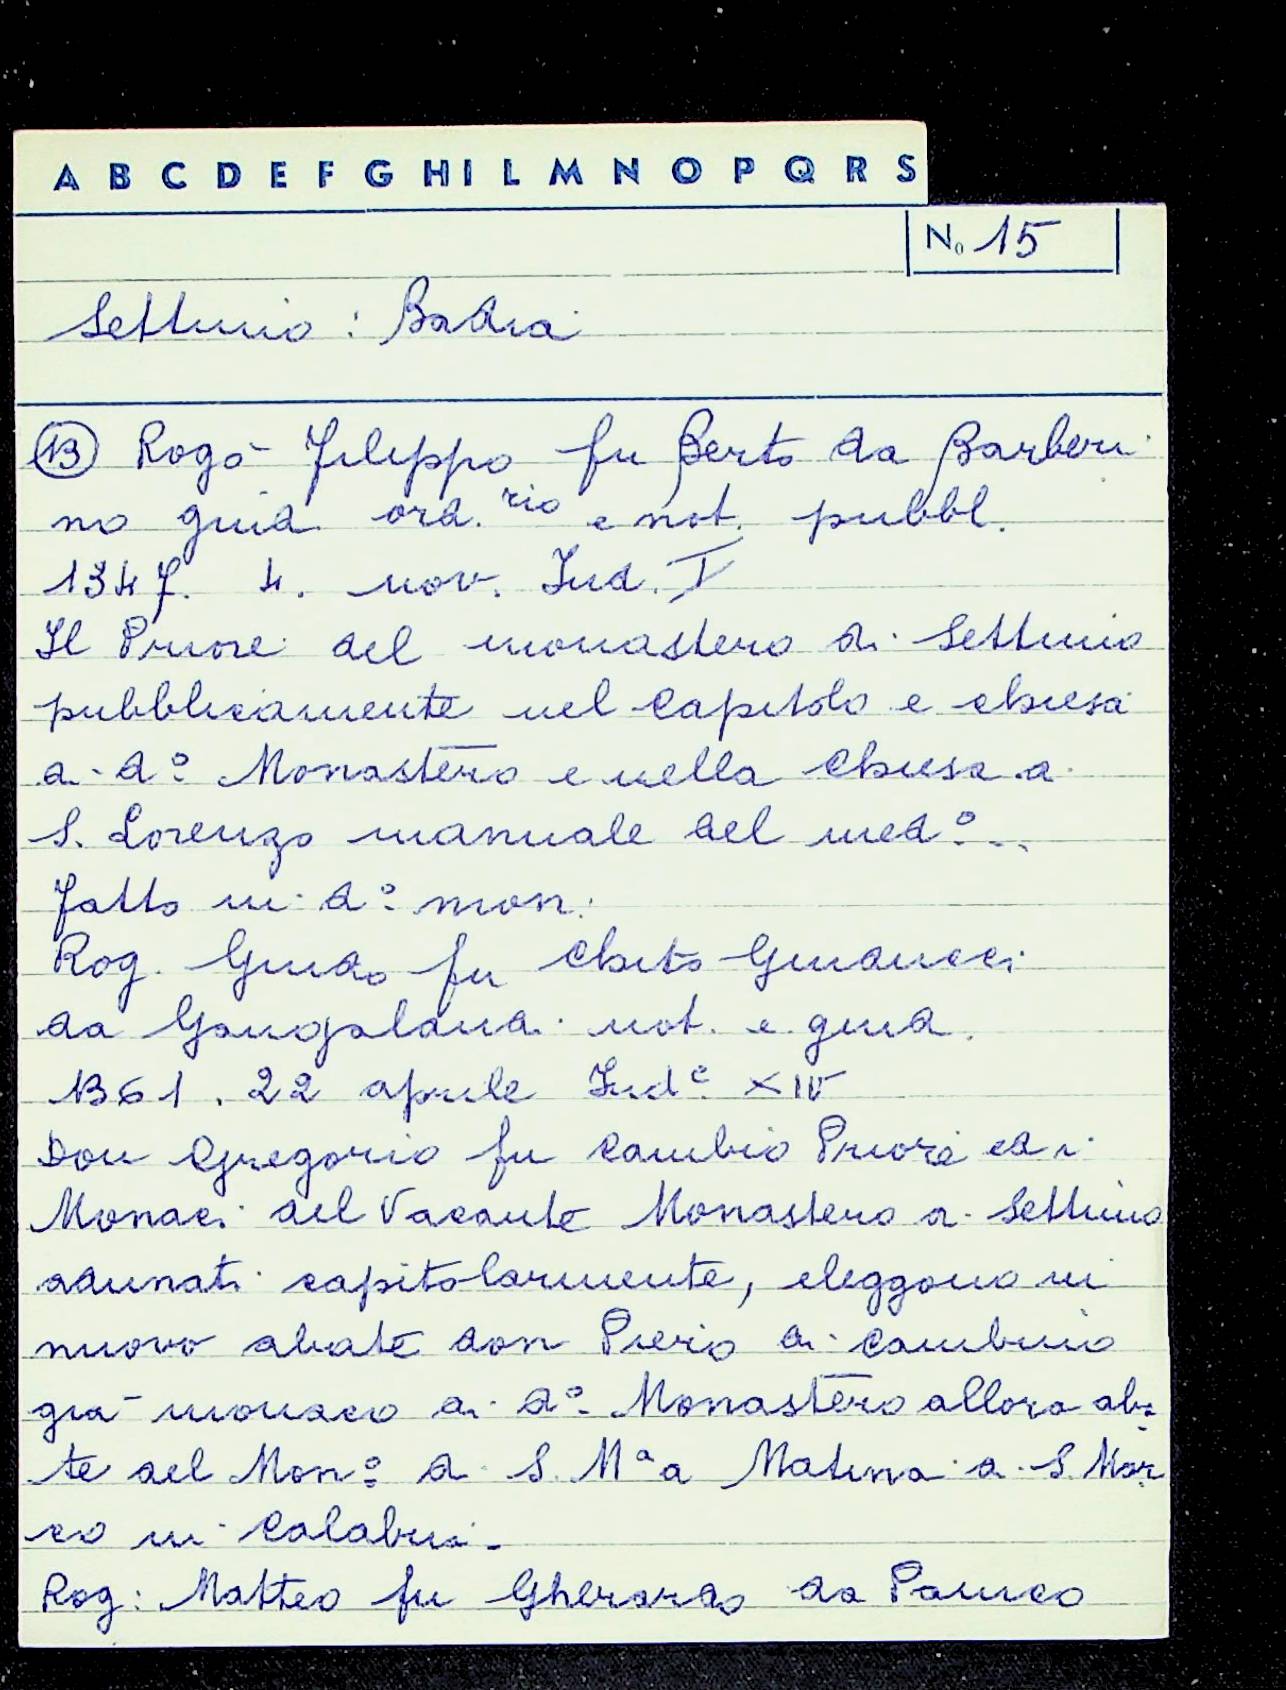 A B C D E F G H I L M N O P Q R S
No 15
Settimo : Badia
(13) Rogò Filippo fu Berto da Barberi
no giud. ord.rio e not. pubbl.
1347. 4. nov. Ind. I
Il Priore del monastero di Settimo
pubblicamente nel capitolo e chiesa
di do: Monastero e nella chiesa di
S. Lorenzo manuale del medo: ..
fatto in do: mon.
Rog. Guido fu Chito Guiducci
da Gangalandi not. e giud.
1361. 22 aprile Inde: XIV
Don Gregorio fu Cambio Priore ed i
Monaci del Vacante Monastero di Settimo
adunati capitolarmente, eleggono in
nuovo abate don Piero di Cambino
già monaco di do: Monastero allora aba
te del Mono: di S. Ma a Matina di S. Mar
co in Calabria.
Rog: Matteo fu Gherardo da